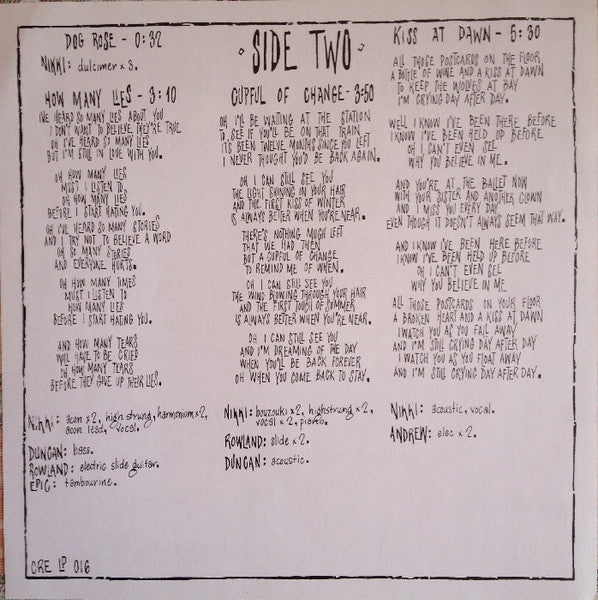 DOG ROSE - 0:32
NIKKI: dulcimer x 3.
HOW MANY LIES - 3:10
I'VE HEARD SO MANY LIES ABOUT YOU
I DON'T WANT TO BELIEVE THEY'RE TRUE
OH I'VE HEARD SO MANY LIES
BUT I'M STILL IN LOVE WITH YOU.
OH HOW MANY LIES
MUST I LISTEN TO
OH HOW MANY LIES
BEFORE I START HATING YOU.
OH I'VE HEARD SO MANY STORIES
AND I TRY NOT TO BELIEVE A WORD
OH SO MANY STORIES
AND EVERYONE HURTS.
OH HOW MANY TIMES
MUST I LISTEN TO
HOW MANY LIES
BEFORE I START HATING YOU.
AND HOW MANY TEARS
WILL HAVE TO BE CRIED
OH HOW MANY TEARS
BEFORE THEY GIVE UP THEIR LIES.
NIKKI: acon x 2, high strung, harmonium x 2,
acon lead, vocal.
DUNCAN: bass.
ROWLAND: electric slide guitar.
EPIC: tambourine.
CRE LP 016
SIDE TWO
CUPFUL OF CHANGE - 3:50
OH I'LL BE WAITING AT THE STATION
TO SEE IF YOU'LL BE ON THAT TRAIN
ITS BEEN TWELVE MONTHS SINCE YOU LEFT
I NEVER THOUGHT YOU'D BE BACK AGAIN.
OH I CAN STILL SEE YOU
THE LIGHT SHINING IN YOUR HAIR
AND THE FIRST KISS OF WINTER
IS ALWAYS BETTER WHEN YOU'RE NEAR.
THERE'S NOTHING MUCH LEFT
THAT WE HAD THEN
BUT A CUPFUL OF CHANGE
TO REMIND ME OF WHEN.
OH I CAN STILL SEE YOU
THE WIND BLOWING THROUGH YOUR HAIR
AND THE FIRST TOUCH OF SUMMER
IS ALWAYS BETTER WHEN YOU'RE NEAR.
OH I CAN STILL SEE YOU
AND I'M DREAMING OF THE DAY
WHEN YOU'LL BE BACK FOREVER
OH WHEN YOU COME BACK TO STAY.
NIKKI: bouzouki x 2, highstrung x 2,
vocal x 2, piano.
ROWLAND: slide x 2.
DUNCAN: acoustic.
KISS AT DAWN - 5:30
ALL THOSE POSTCARDS ON THE FLOOR
A BOTTLE OF WINE AND A KISS AT DAWN
TO KEEP THE WOLVES AT BAY
I'M CRYING DAY AFTER DAY.
WELL I KNOW I'VE BEEN THERE BEFORE
I KNOW I'VE BEEN HELD UP BEFORE
OH I CAN'T EVEN SEE
WHY YOU BELIEVE IN ME.
AND YOU'RE AT THE BALLET NOW
WITH YOUR SISTER AND ANOTHER CLOWN
AND I MISS YOU EVERY DAY
EVEN THOUGH IT DOESN'T ALWAYS SEEM THAT WAY.
AND I KNOW I'VE BEEN HERE BEFORE
I KNOW I'VE BEEN HELD UP BEFORE
OH I CAN'T EVEN SEE
WHY YOU BELIEVE IN ME
ALL THOSE POSTCARDS ON YOUR FLOOR
A BROKEN HEART AND A KISS AT DAWN
I WATCH YOU AS YOU FALL AWAY
AND I'M STILL CRYING DAY AFTER DAY
I WATCH YOU AS YOU FLOAT AWAY
AND I'M STILL CRYING DAY AFTER DAY.
NIKKI: acoustic, vocal.
ANDREW: elec x 2.